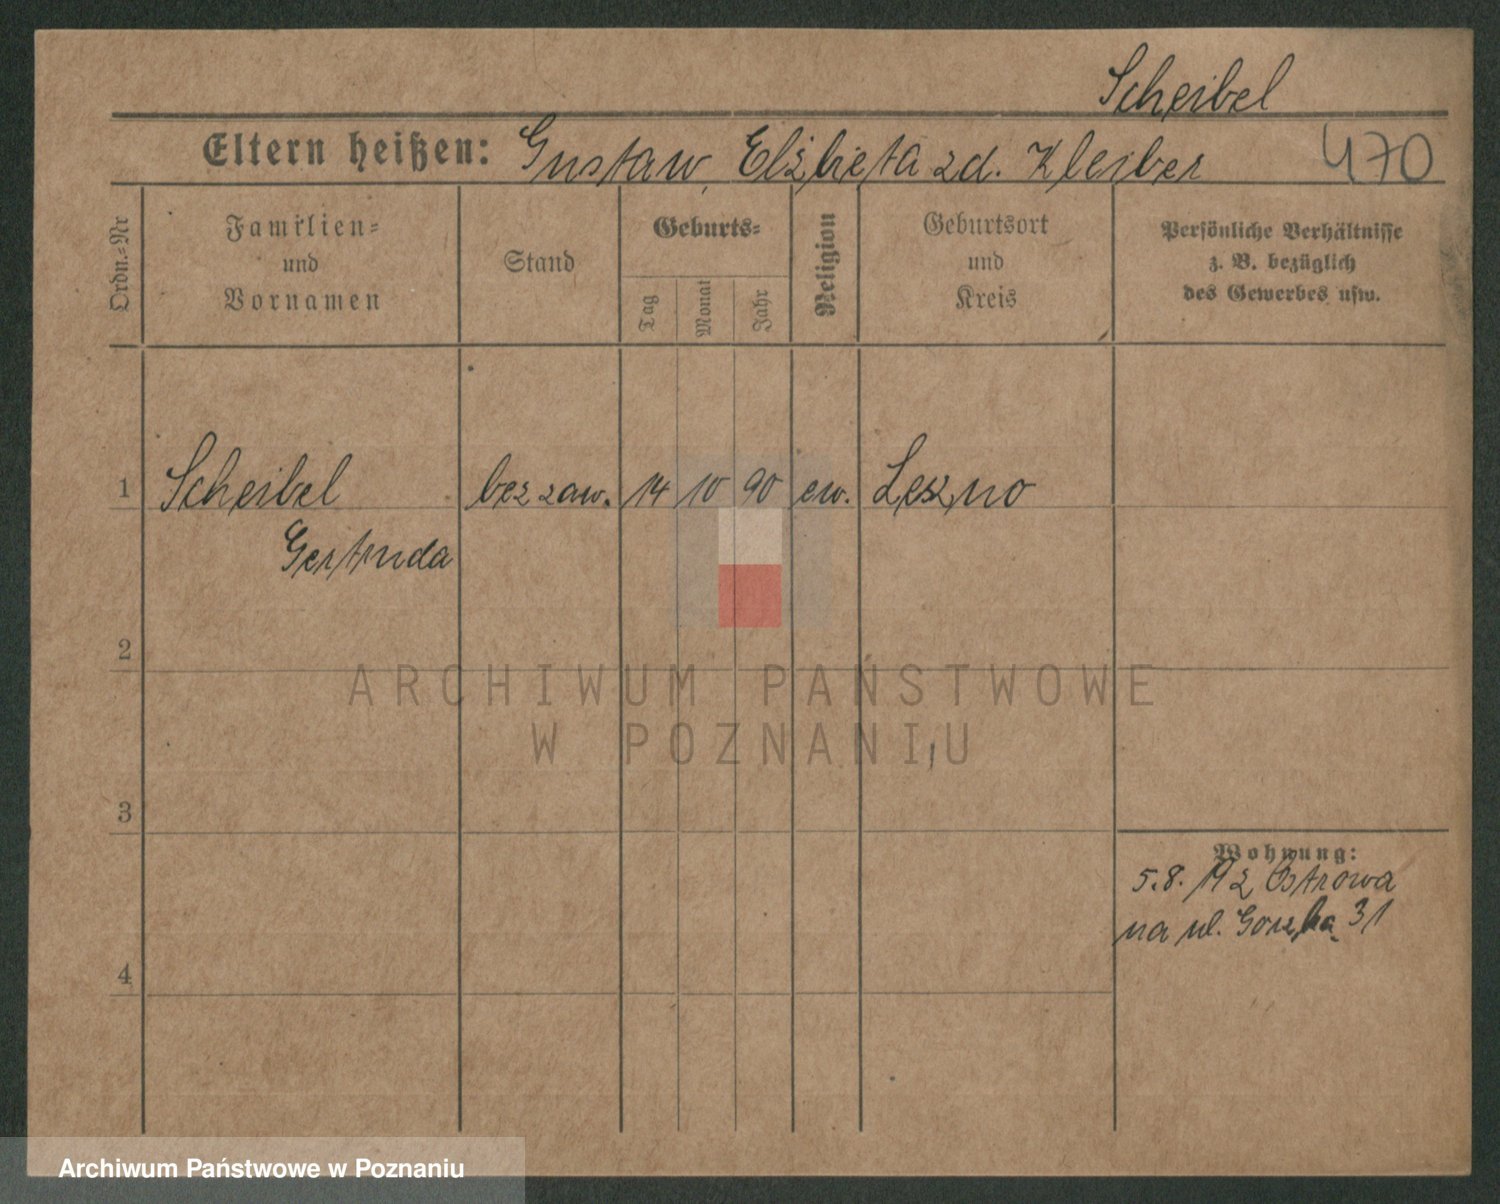 Scheibel
Eltern heißen: Gustaw, Elżbieta zd. Kleiber 470
Ordn.-Nr
Familien-
und
Vornamen
Stand
Geburts-
Tag Monat Jahr
Religion
Geburtsort
und
Kreis
Persönliche Verhältnisse
z. B. bezüglich
des Gewerbes usw.
1 Scheibel bez zaw. 14 10 90 ew. Leszno
Gertruda
2
ARCHIWUM PAŃSTWOWE
W POZNANIU
3
Wohnung:
5.8. 192 Ostrowa
na ul. 31
4
Archiwum Państwowe w Poznaniu